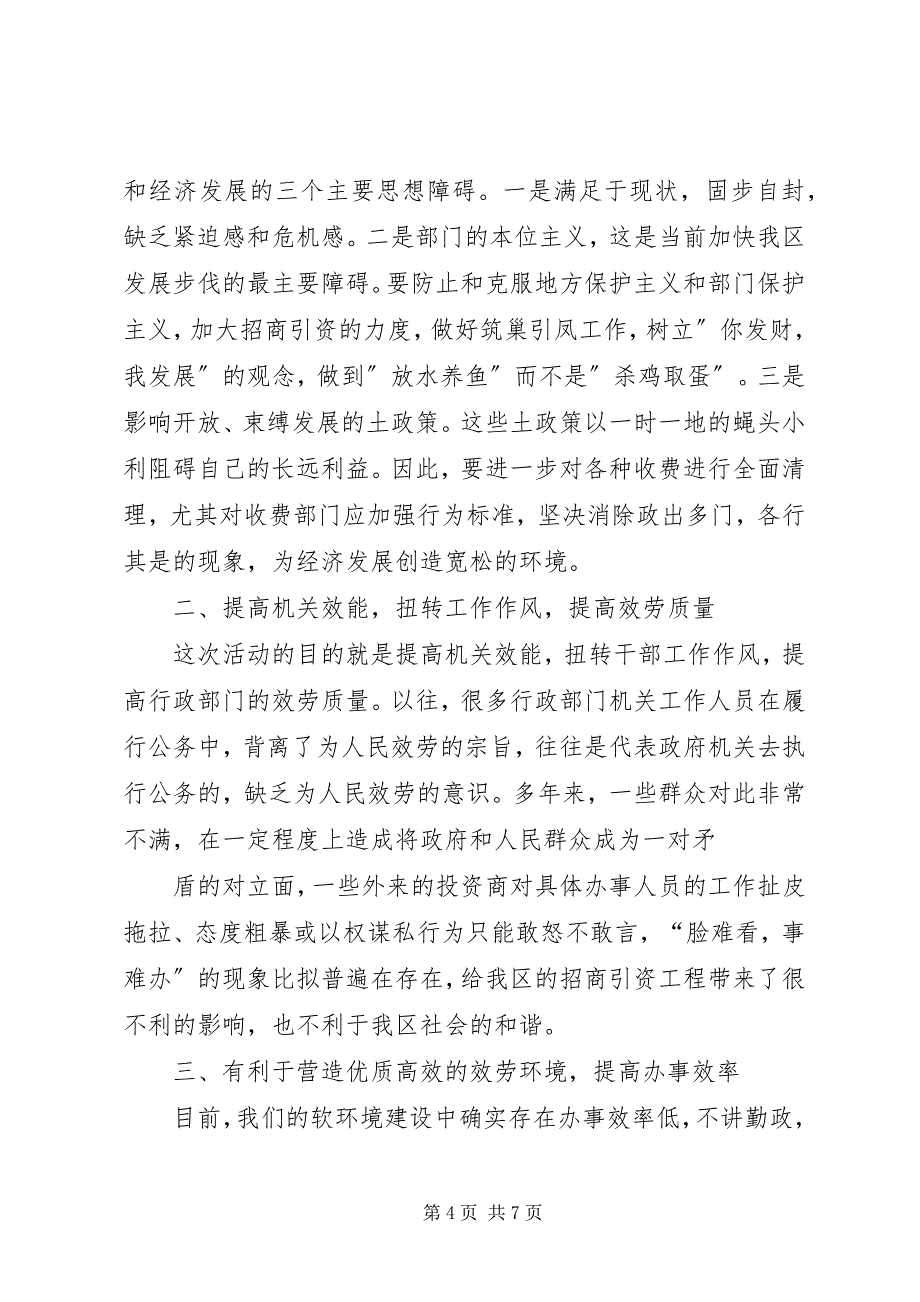 和经济发展的三个主要思想障碍。一是满足于现状，固步自封，
缺乏紧迫感和危机感。二是部门的本位主义，这是当前加快我区
发展步伐的最主要障碍。要防止和克服地方保护主义和部门保护
主义，加大招商引资的力度，做好筑巢引凤工作，树立〞你发财，
我发展〞的观念，做到〞放水养鱼〞而不是〞杀鸡取蛋〞。三是
影响开放、束缚发展的土政策。这些土政策以一时一地的蝇头小
利阻碍自己的长远利益。因此，要进一步对各种收费进行全面清
理，尤其对收费部门应加强行为标准，坚决消除政出多门，各行
其是的现象，为经济发展创造宽松的环境。
二、提高机关效能，扭转工作作风，提高效劳质量
这次活动的目的就是提高机关效能，扭转干部工作作风，提
高行政部门的效劳质量。以往，很多行政部门机关工作人员在履
行公务中，背离了为人民效劳的宗旨，往往是代表政府机关去执
行公务的，缺乏为人民效劳的意识。多年来，一些群众对此非常
不满，在一定程度上造成将政府和人民群众成为一对矛
盾的对立面，一些外来的投资商对具体办事人员的工作扯皮
拖拉、态度粗暴或以权谋私行为只能敢怒不敢言，“脸难看，事
难办〞的现象比拟普遍在存在，给我区的招商引资工程带来了很
不利的影响，也不利于我区社会的和谐。
三、有利于营造优质高效的效劳环境，提高办事效率
目前，我们的软环境建设中确实存在办事效率低，不讲勤政，
第 4 页 共 7 页